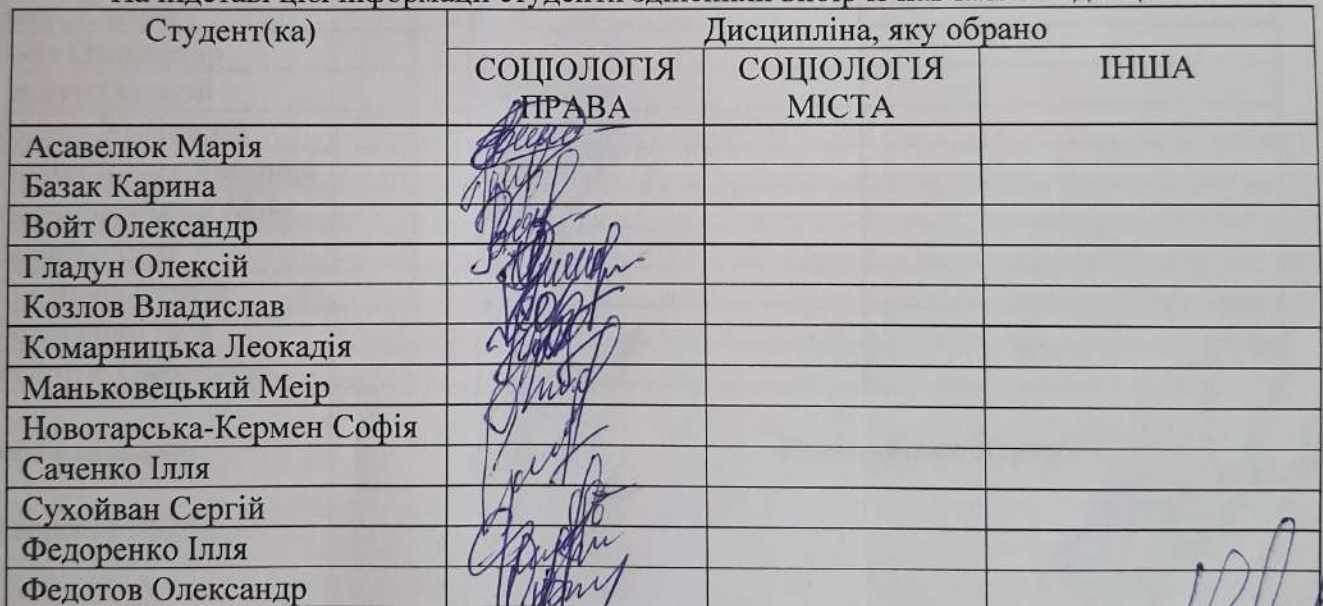 Студент(ка)
Дисципліна, яку обрано
СОЦІОЛОГІЯ ПРАВА
СОЦІОЛОГІЯ МІСТА
ІНША
Асавелюк Марія
Базак Карина
Войт Олександр
Гладун Олексій
Козлов Владислав
Комарницька Леокадія
Маньковецький Меір
Новотарська-Кермен Софія
Саченко Ілля
Сухойван Сергій
Федоренко Ілля
Федотов Олександр